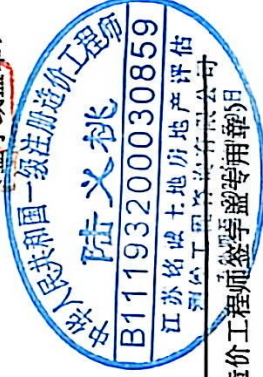 中华人民共和国一级注册造价工程师
陆义桃
B11193200030859
江苏铭诚土地房地产评估
造价工程师签字盖专用章